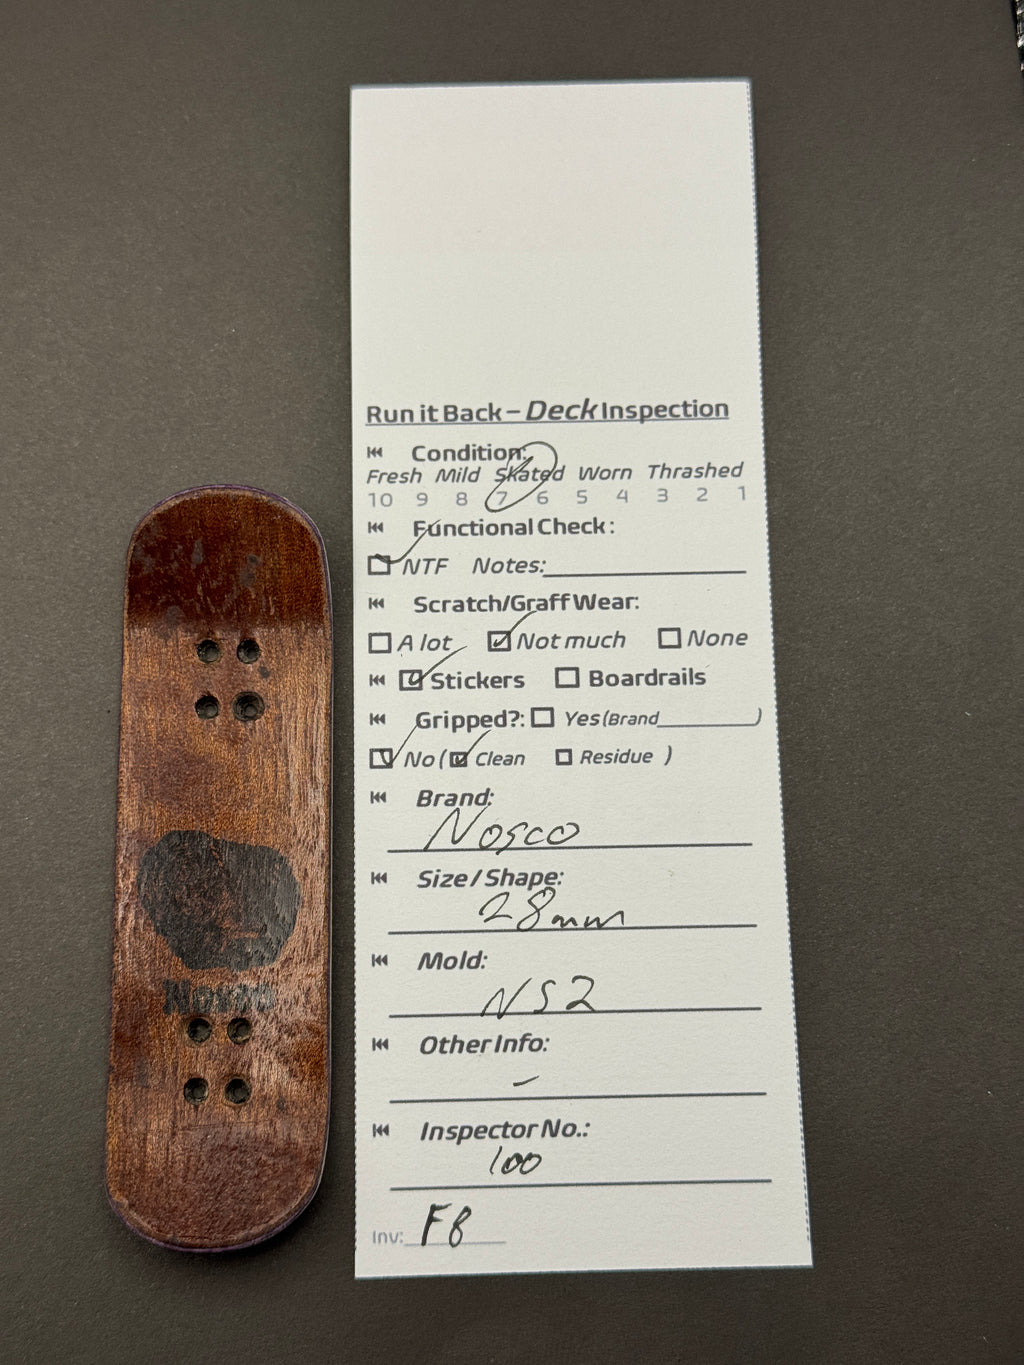 Run it Back – Deck Inspection
Condition:
Fresh Mild Skated Worn Thrashed
10 9 8 7 6 5 4 3 2 1
Functional Check:
NTF Notes:
Scratch/Graff Wear:
A lot Not much None
Stickers Boardrails
Gripped?: Yes (Brand )
No ( Clean Residue )
Brand:
Nosco
Size / Shape:
28mm
Mold:
NS2
Other Info:
–
Inspector No.:
100
Inv: F8